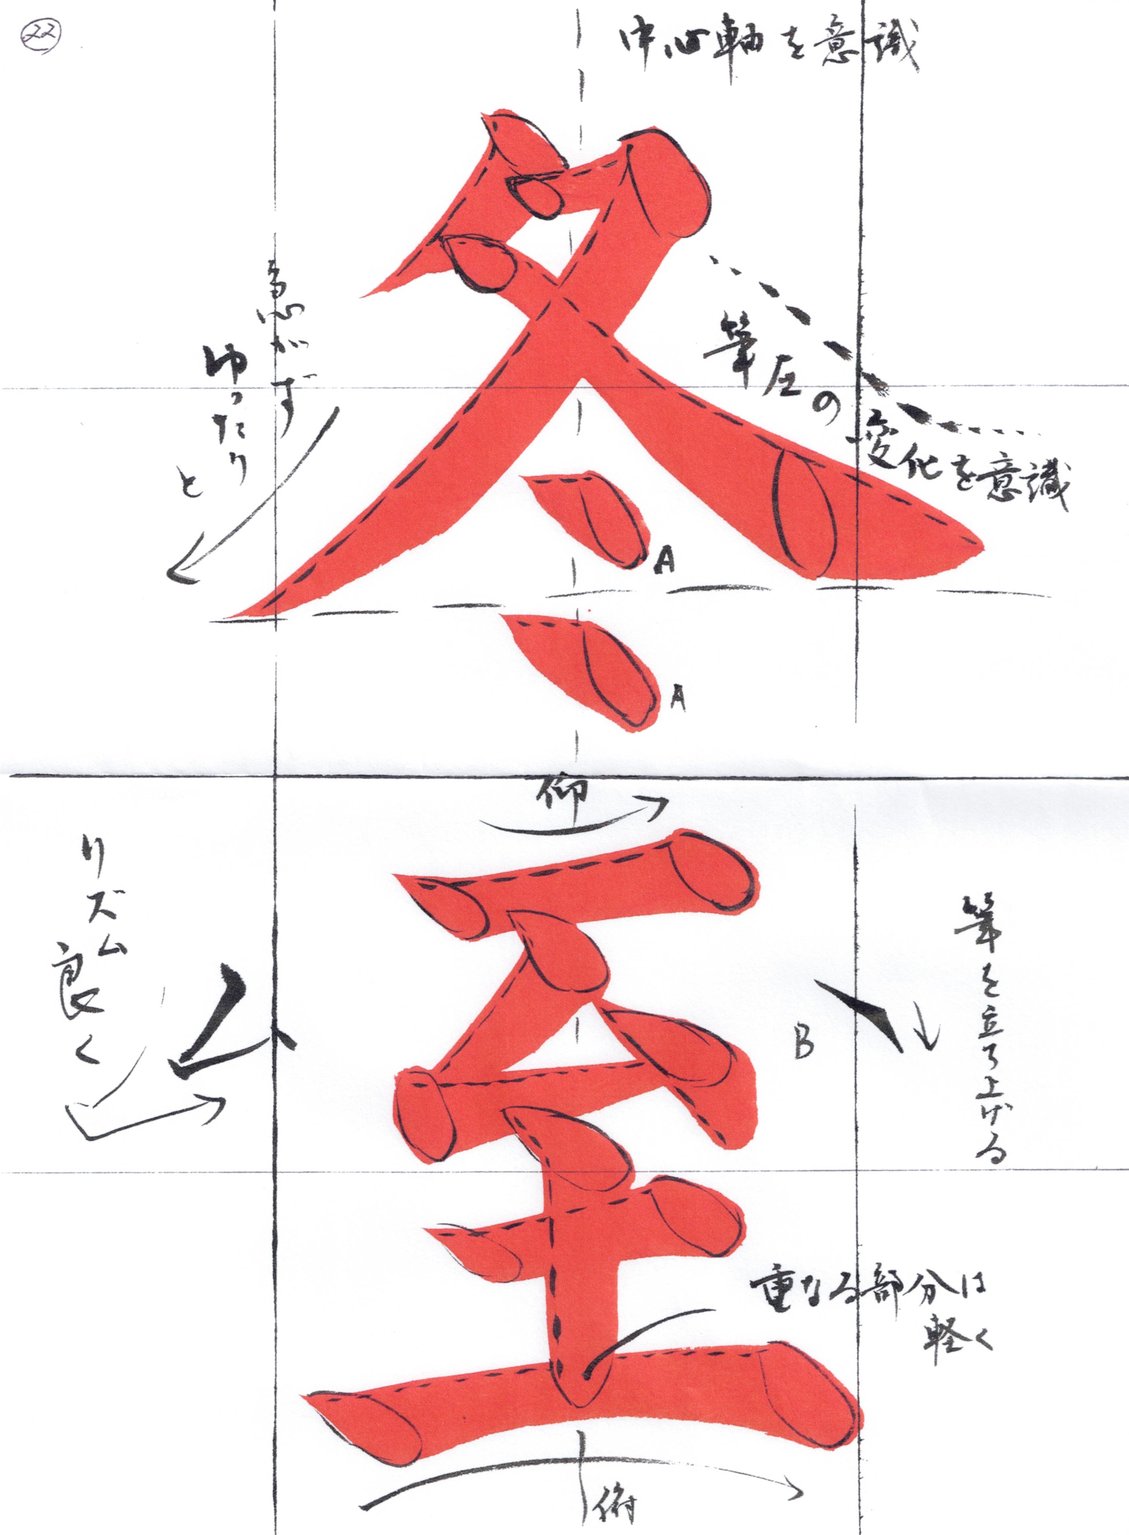 22
中心軸を意識
冬
急がず
ゆったり
と
筆圧の
変化を意識
A
A
仰
至
リズム
良く
ム
B
筆を立ち上げる
重なる部分は
軽く
俯